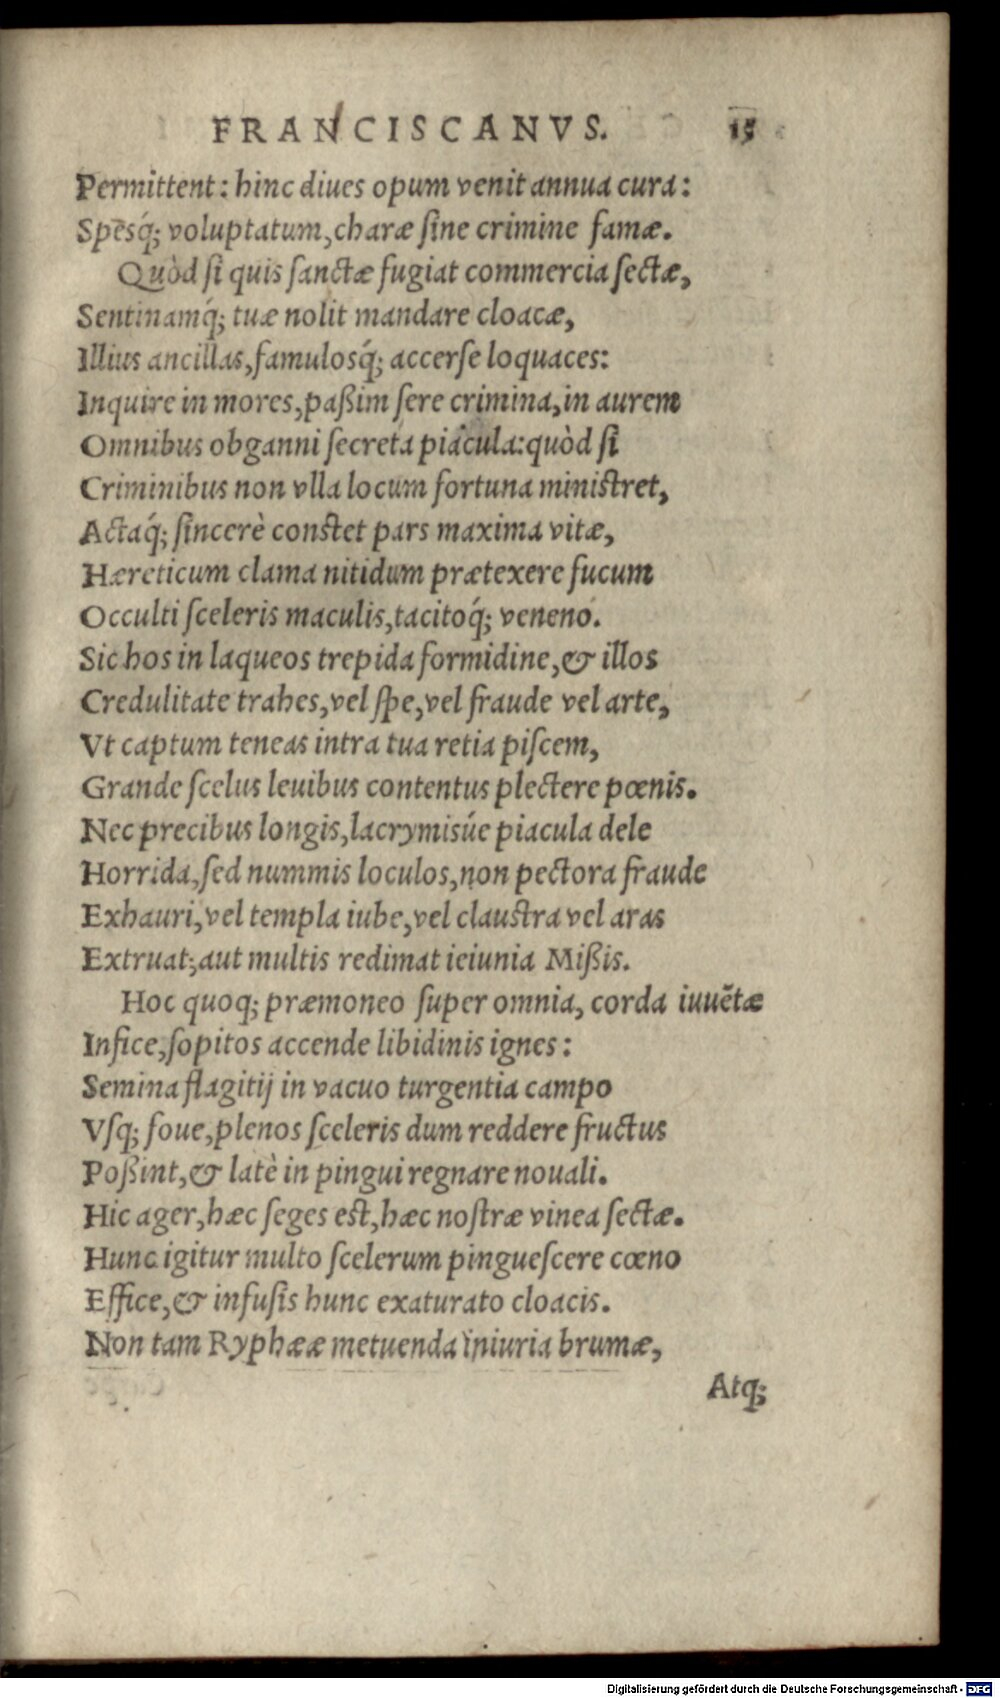 FRANCISCANVS. 15
Permittent: hinc diues opum venit annua cura:
Spēsq́; voluptatum, charæ ſine crimine famæ.
Quòd ſi quis ſanctæ fugiat commercia ſectæ,
Sentinamq́; tuæ nolit mandare cloacæ,
Illius ancillas, famulosq́; accerſe loquaces:
Inquire in mores, paßim ſere crimina, in aurem
Omnibus obganni ſecreta piacula: quòd ſi
Criminibus non vlla locum fortuna miniſtret,
Actaq́; ſincerè conſtet pars maxima vitæ,
Hæreticum clama nitidum prætexere fucum
Occulti ſceleris maculis, tacitoq́; veneno.
Sic hos in laqueos trepida formidine, & illos
Credulitate trahes, vel ſpe, vel fraude vel arte,
Vt captum teneas intra tua retia piſcem,
Grande ſcelus leuibus contentus plectere pœnis.
Nec precibus longis, lacrymisúe piacula dele
Horrida, ſed nummis loculos, non pectora fraude
Exhauri, vel templa iube, vel clauſtra vel aras
Extruat; aut multis redimat ieiunia Mißis.
Hoc quoq; præmoneo ſuper omnia, corda iuuētæ
Infice, ſopitos accende libidinis ignes:
Semina flagitij in vacuo turgentia campo
Vſq; foue, plenos ſceleris dum reddere fructus
Poßint, & latè in pingui regnare nouali.
Hic ager, hæc ſeges eſt, hæc noſtræ vinea ſectæ.
Hunc igitur multo ſcelerum pingueſcere cœno
Effice, & infuſis hunc exaturato cloacis.
Non tam Ryphææ metuenda iniuria brumæ,
Atq;
Digitalisierung gefördert durch die Deutsche Forschungsgemeinschaft - DFG